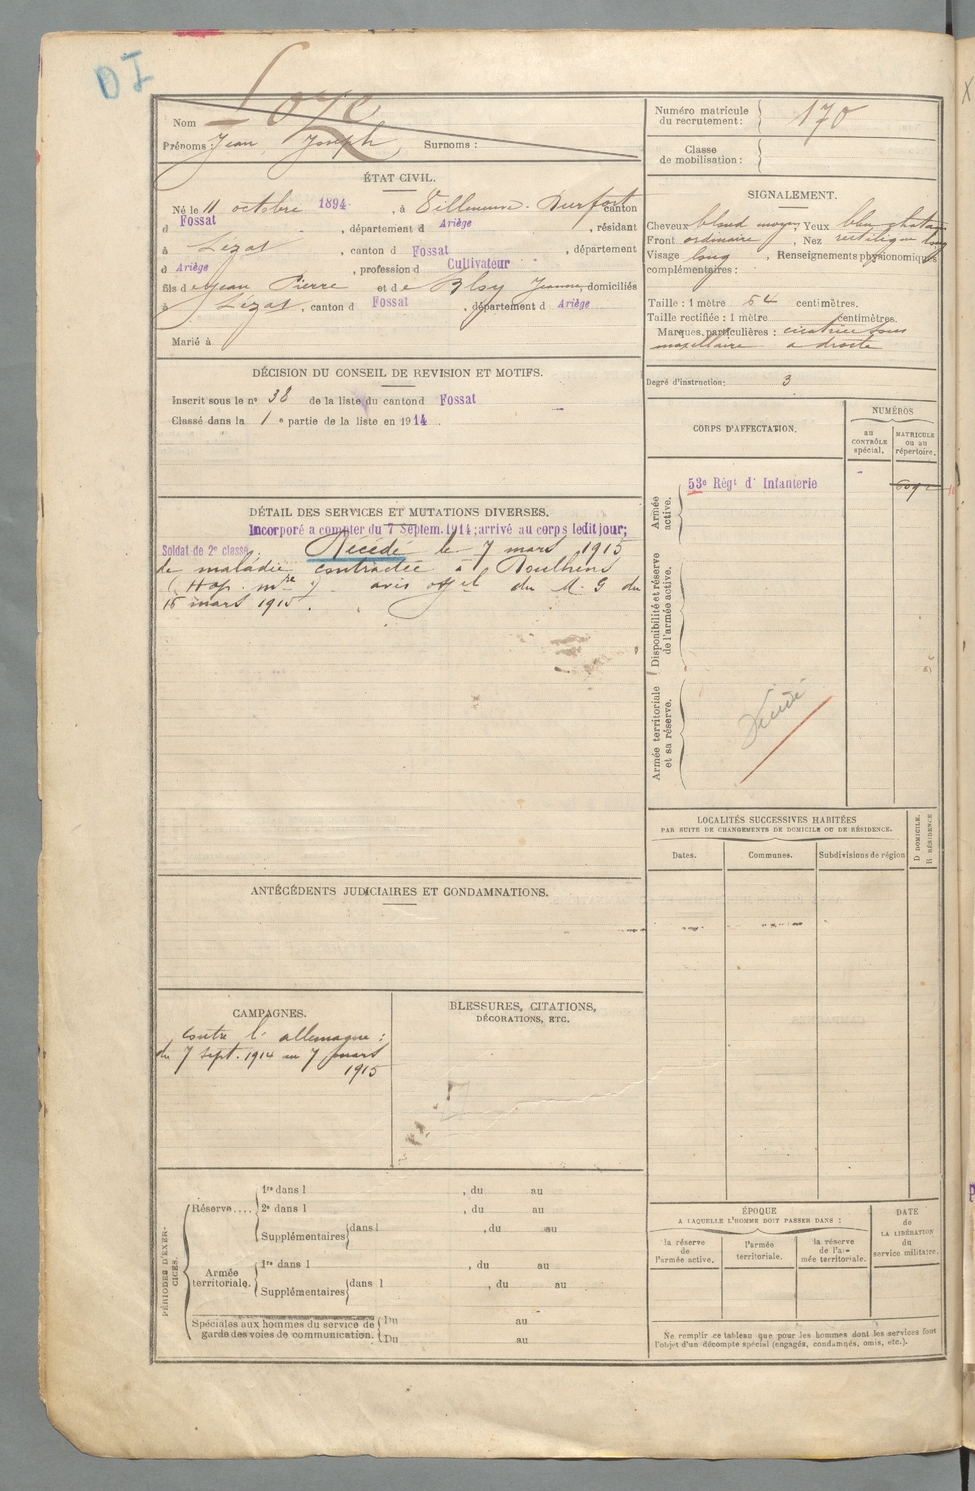 DI
Nom Loze
Prénoms : Jean Joseph Surnoms :
Numéro matricule du recrutement : 170
Classe de mobilisation :
ÉTAT CIVIL.
Né le 11 octobre 1894, à Villeneuve-Durfort canton
d Fossat, département d Ariège, résidant
à Lézat, canton d Fossat, département
d Ariège, profession d Cultivateur
fils de Jean Pierre et de Jeanne, domiciliés
à Lézat, canton d Fossat, département d Ariège
Marié à
SIGNALEMENT.
Cheveux blond moyen, Yeux
Front ordinaire, Nez rectiligne long
Visage long, Renseignements physionomiques
complémentaires :
Taille : 1 mètre 54 centimètres.
Taille rectifiée : 1 mètre centimètres.
Marques particulières : cicatrice sous
maxillaire a droite
Degré d'instruction : 3
DÉCISION DU CONSEIL DE REVISION ET MOTIFS.
Inscrit sous le nº 38 de la liste du canton d Fossat
Classé dans la 1 e partie de la liste en 1914.
DÉTAIL DES SERVICES ET MUTATIONS DIVERSES.
Incorporé a compter du 7 Septem. 1914; arrivé au corps ledit jour;
Soldat de 2e classe. Décédé le 7 mars 1915
de maladie contractée à
(Hop. mre) avis offel du M. G du
15 mars 1915.
CORPS D'AFFECTATION.
NUMÉROS
au CONTRÔLE spécial.
MATRICULE ou au répertoire.
Armée active.
53e Régt d' Infanterie
Disponibilité et réserve de l'armée active.
Armée territoriale et sa réserve.
LOCALITÉS SUCCESSIVES HABITÉES
PAR SUITE DE CHANGEMENTS DE DOMICILE OU DE RÉSIDENCE.
Dates. Communes. Subdivisions de région
D DOMICILE. R RÉSIDENCE
ANTÉCÉDENTS JUDICIAIRES ET CONDAMNATIONS.
CAMPAGNES.
Contre l'allemagne :
du 7 sept. 1914 au 7 mars
1915
BLESSURES, CITATIONS,
DÉCORATIONS, ETC.
PÉRIODES D'EXERCICES.
Réserve....
1re dans l , du au
2e dans l , du au
Supplémentaires dans l , du au
Armée territoriale.
1re dans l , du au
Supplémentaires dans l , du au
Spéciales aux hommes du service de
garde des voies de communication.
Du au
Du au
ÉPOQUE
A LAQUELLE L'HOMME DOIT PASSER DANS :
la réserve de l'armée active.
l'armée territoriale.
la réserve de l'armée territoriale.
DATE de LA LIBÉRATION du service militaire.
Ne remplir ce tableau que pour les hommes dont les services font
l'objet d'un décompte spécial (engagés, condamnés, omis, etc.).